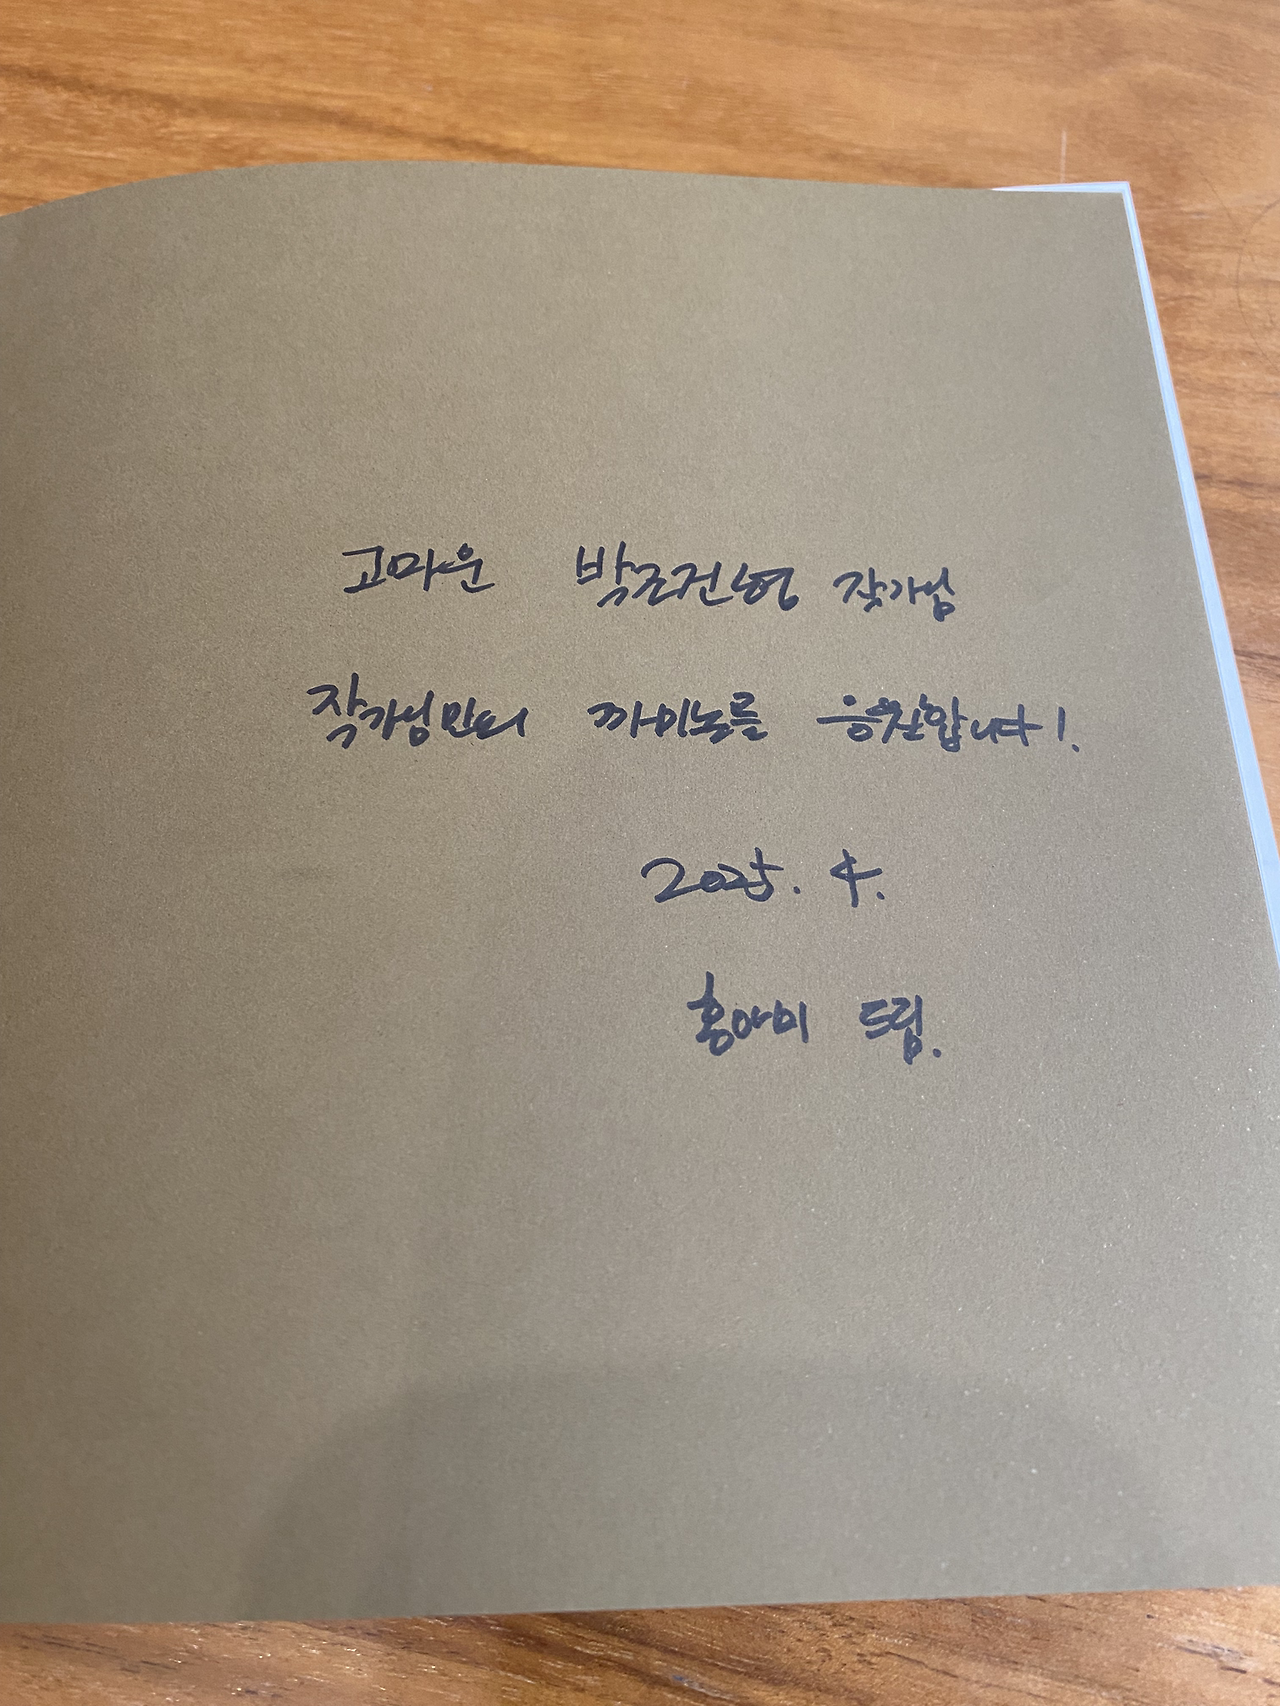 고마운 박조건형 작가님
작가님만의 까미노를 응원합니다!
2025. 4.
홍아미 드림.